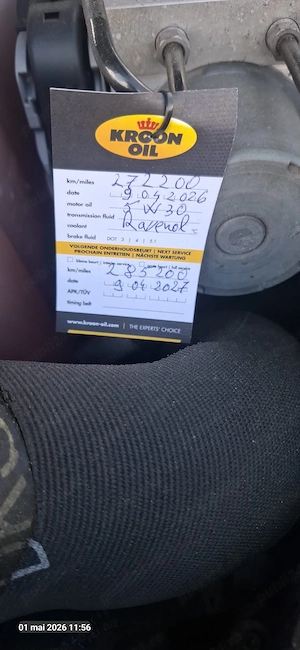 KROON
OIL
km/miles 272200
date 9.04.2026
motor oil 5W30
transmission fluid Ravenol
coolant °C
brake fluid DOT 3 | 4 | 5.1
VOLGENDE ONDERHOUDSBEURT | NEXT SERVICE
PROCHAIN ENTRETIEN | NÄCHSTE WARTUNG
km/miles 285200
date 9.04 2027
APK/TÜV
timing belt
www.kroon-oil.com | THE EXPERTS' CHOICE
01 mai 2026 11:56